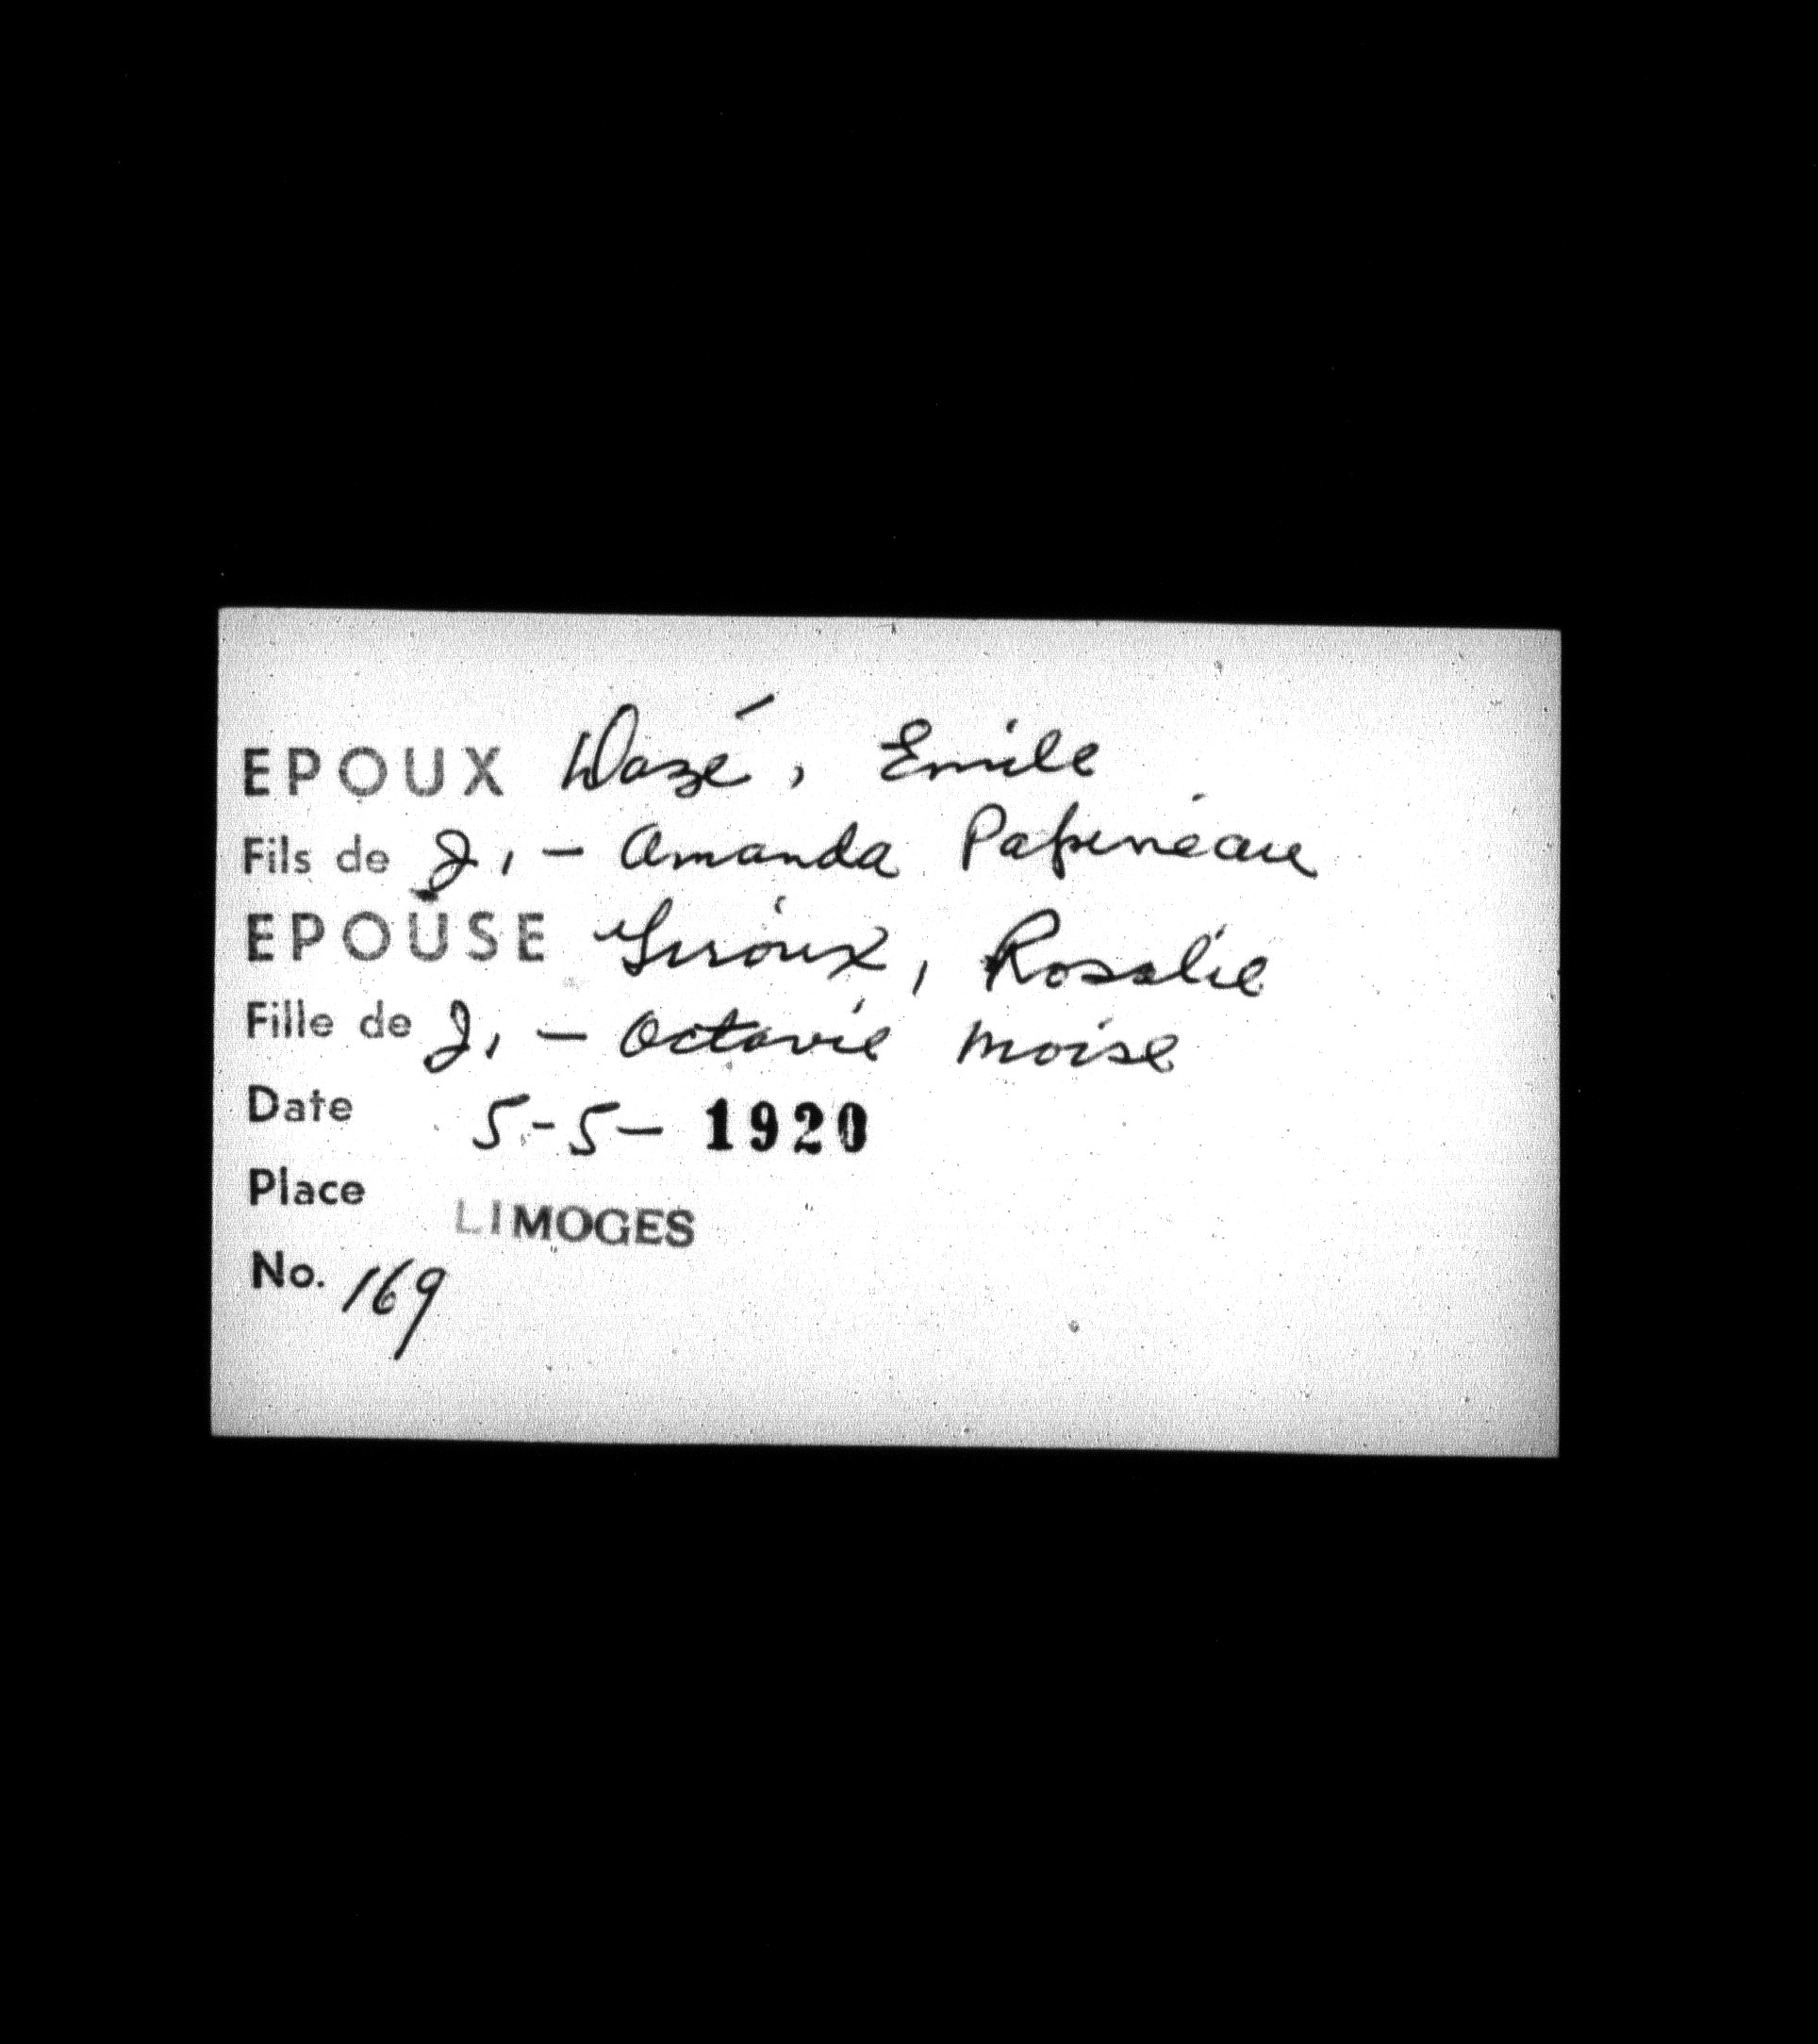 EPOUX Dazé, Emile
Fils de J. - Amanda Papineau
EPOUSE Giroux, Rosalie
Fille de J. - Octavie Moise
Date 5-5-1920
Place LIMOGES
No. 169